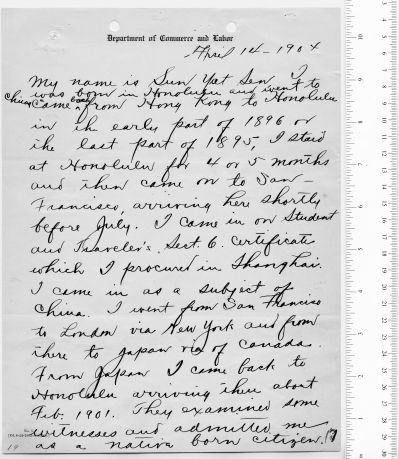 Department of Commerce and Labor
April 14 - 1904
My name is Sun Yat Sen I
was born in Honolulu and went to
China came back from Hong Kong to Honolulu
in the early part of 1896 or
the last part of 1895, I staid
at Honolulu for 4 or 5 months
and then came on to San
Francisco, arriving here shortly
before July. I came in on Student
and Traveler's Sect. 6. certificate
which I procured in Shanghai.
I came in as a subject of
China. I went from San Francisco
to London via New York and from
there to Japan via of Canada.
From Japan I came back to
Honolulu arriving there about
Feb. 1901. They examined some
witnesses and admitted me
as a native born citizen.